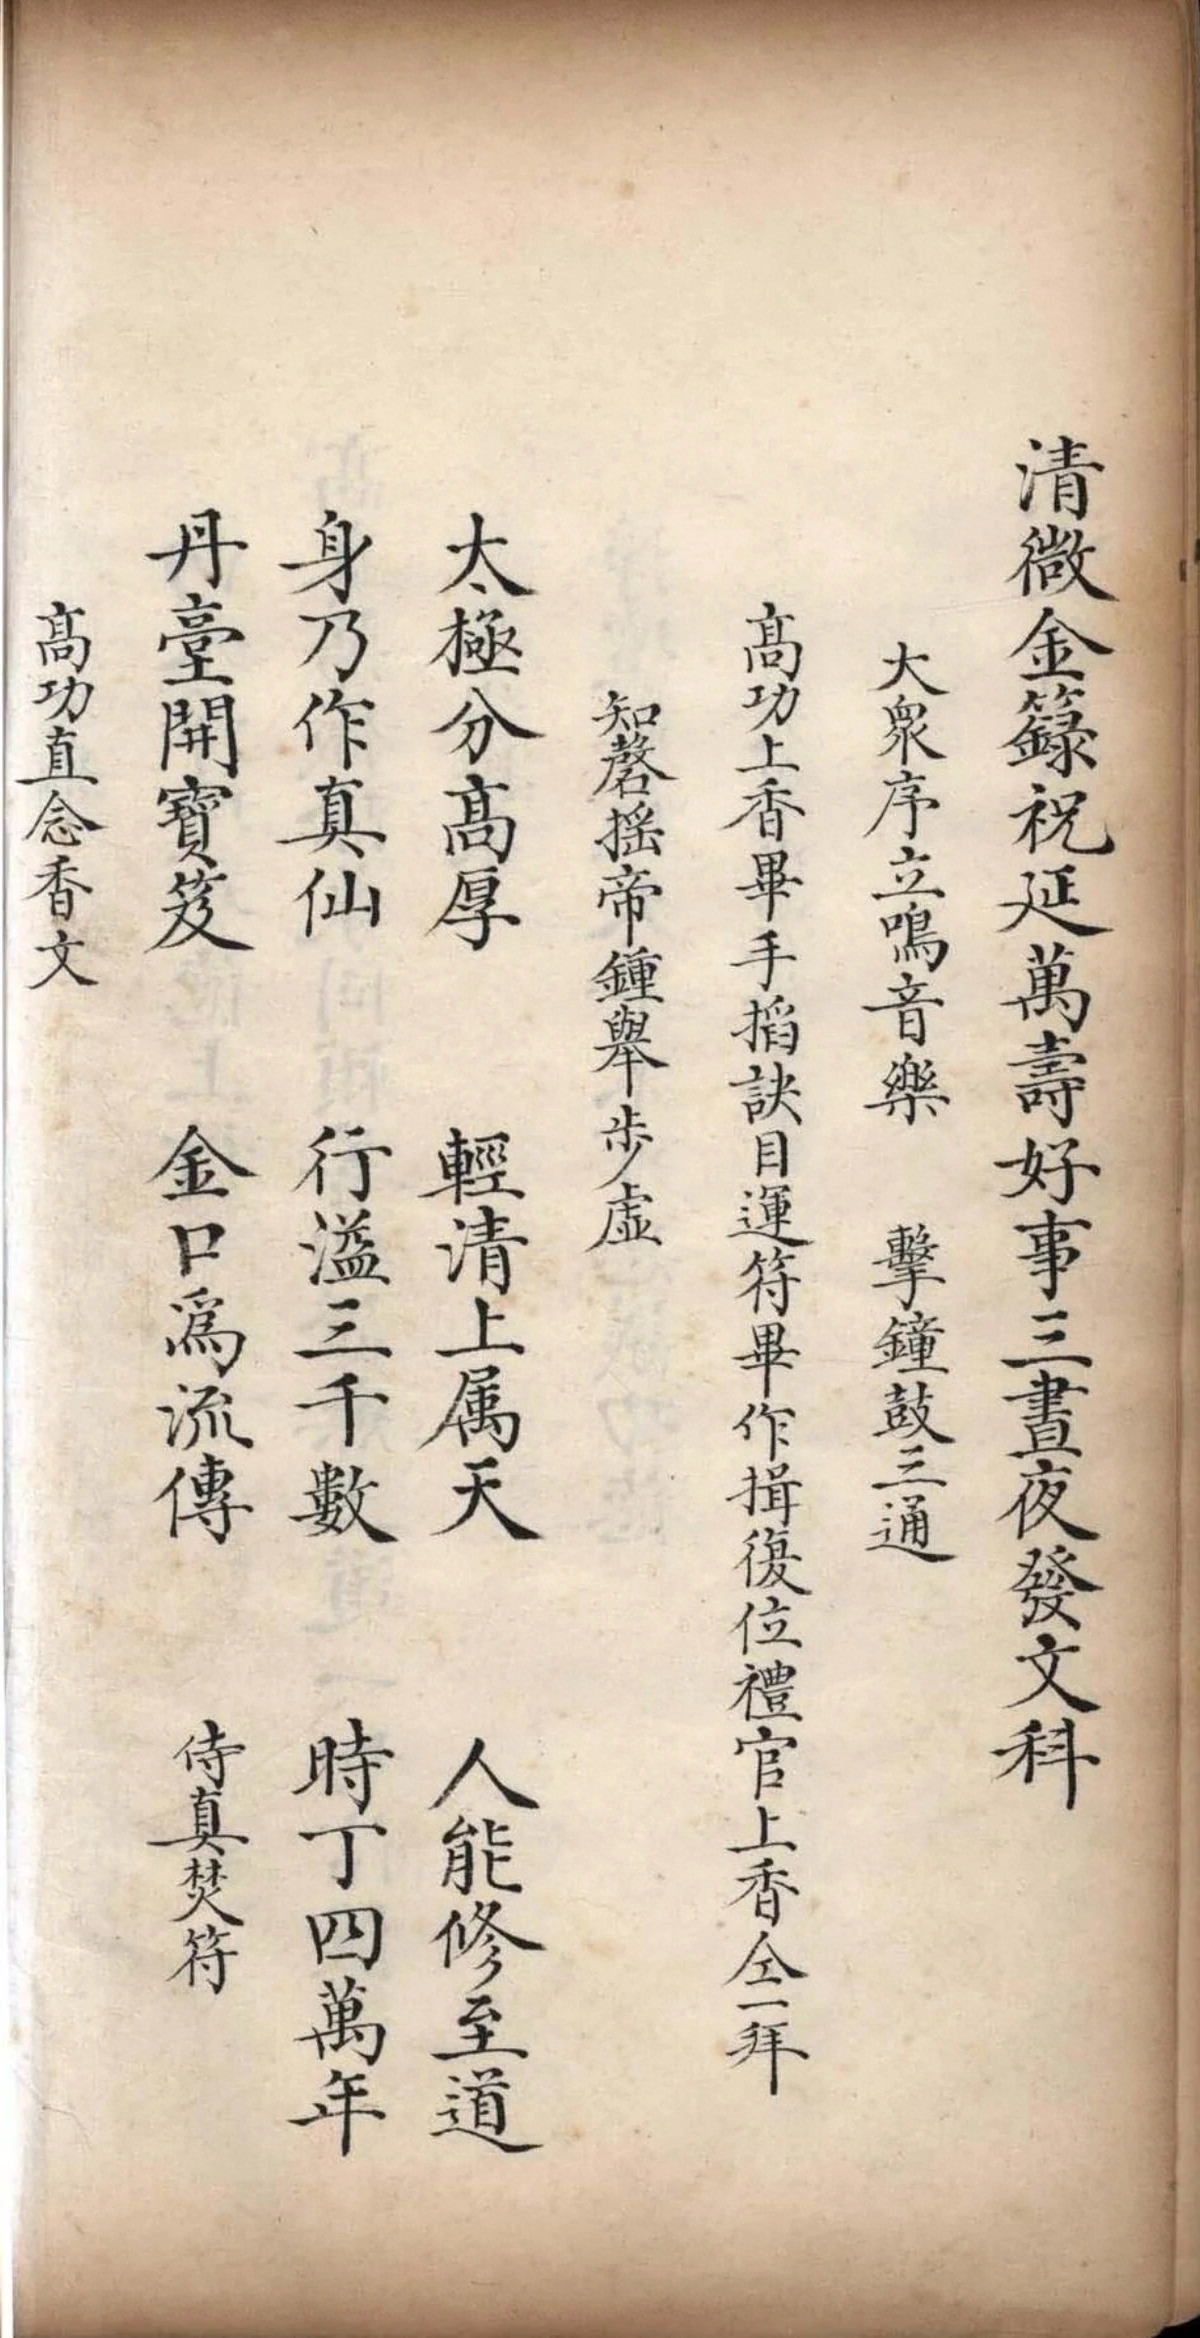 清微金籙祝延萬壽好事三晝夜發文科
大眾序立鳴音樂　擊鐘鼓三通
高功上香畢手搯訣目運符畢作揖復位禮官上香仝一拜
知磬搖帝鍾舉步虛
太極分高厚　輕清上属天　人能修至道
身乃作真仙　行溢三千數　時丁四萬年
丹臺開寶笈　金口為流傳　侍真焚符
高功直念香文